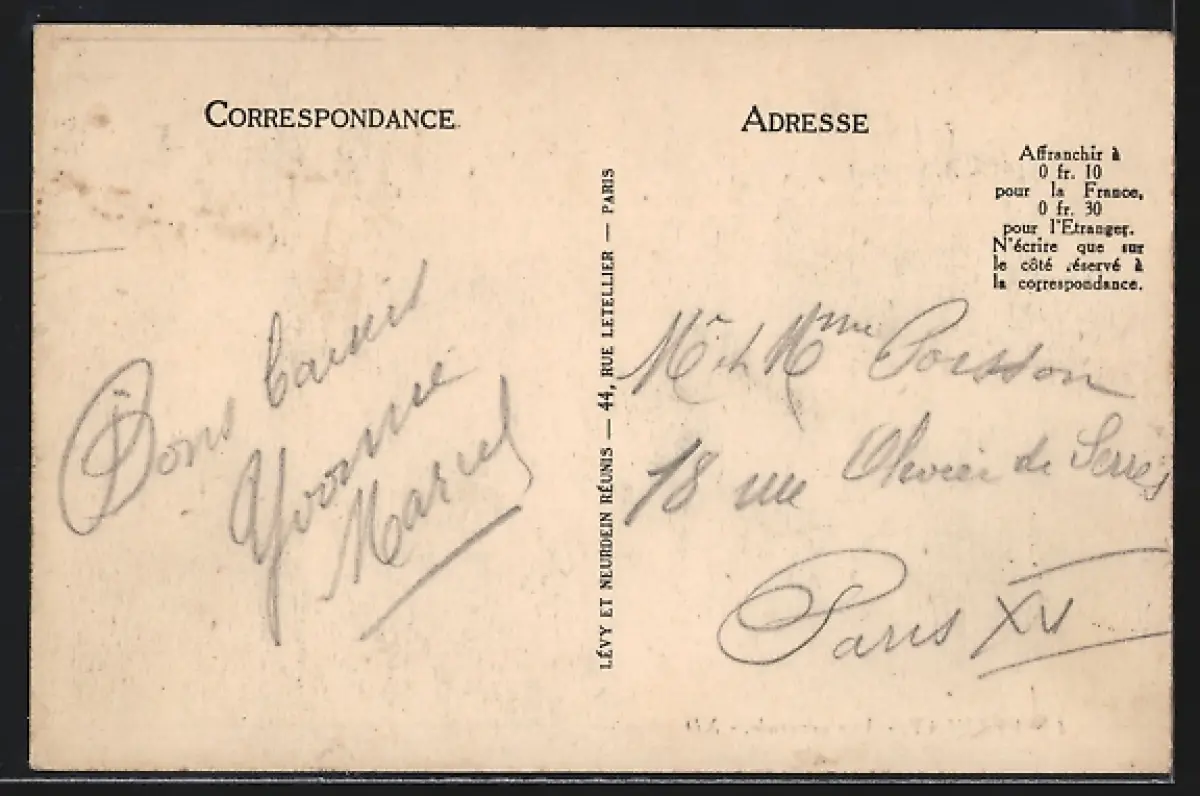 CORRESPONDANCE
Bons baisers
Yvonne
Marcel
LÉVY ET NEURDEIN RÉUNIS — 44, RUE LETELLIER — PARIS
ADRESSE
Affranchir à
0 fr. 10
pour la France,
0 fr. 30
pour l'Etranger.
N'écrire que sur
le côté réservé à
la correspondance.
Mr et Mme Poisson
18 rue Olivier de Serres
Paris XV